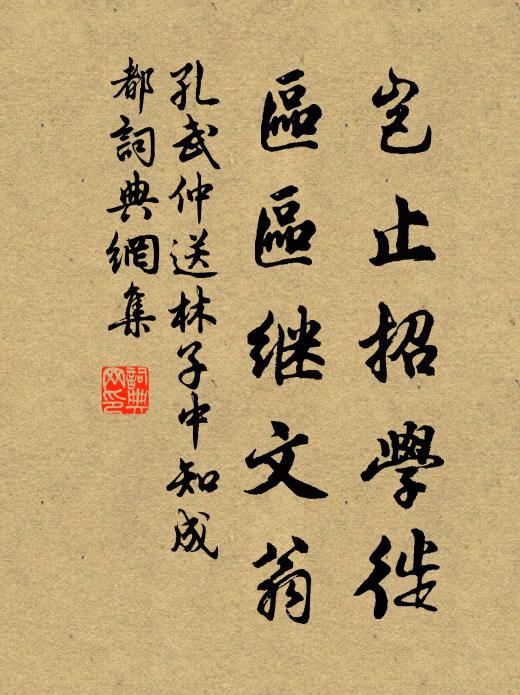 岂止招學徒
區區继文翁
孔武仲送林子中知成
都詞典網集
詞典网印